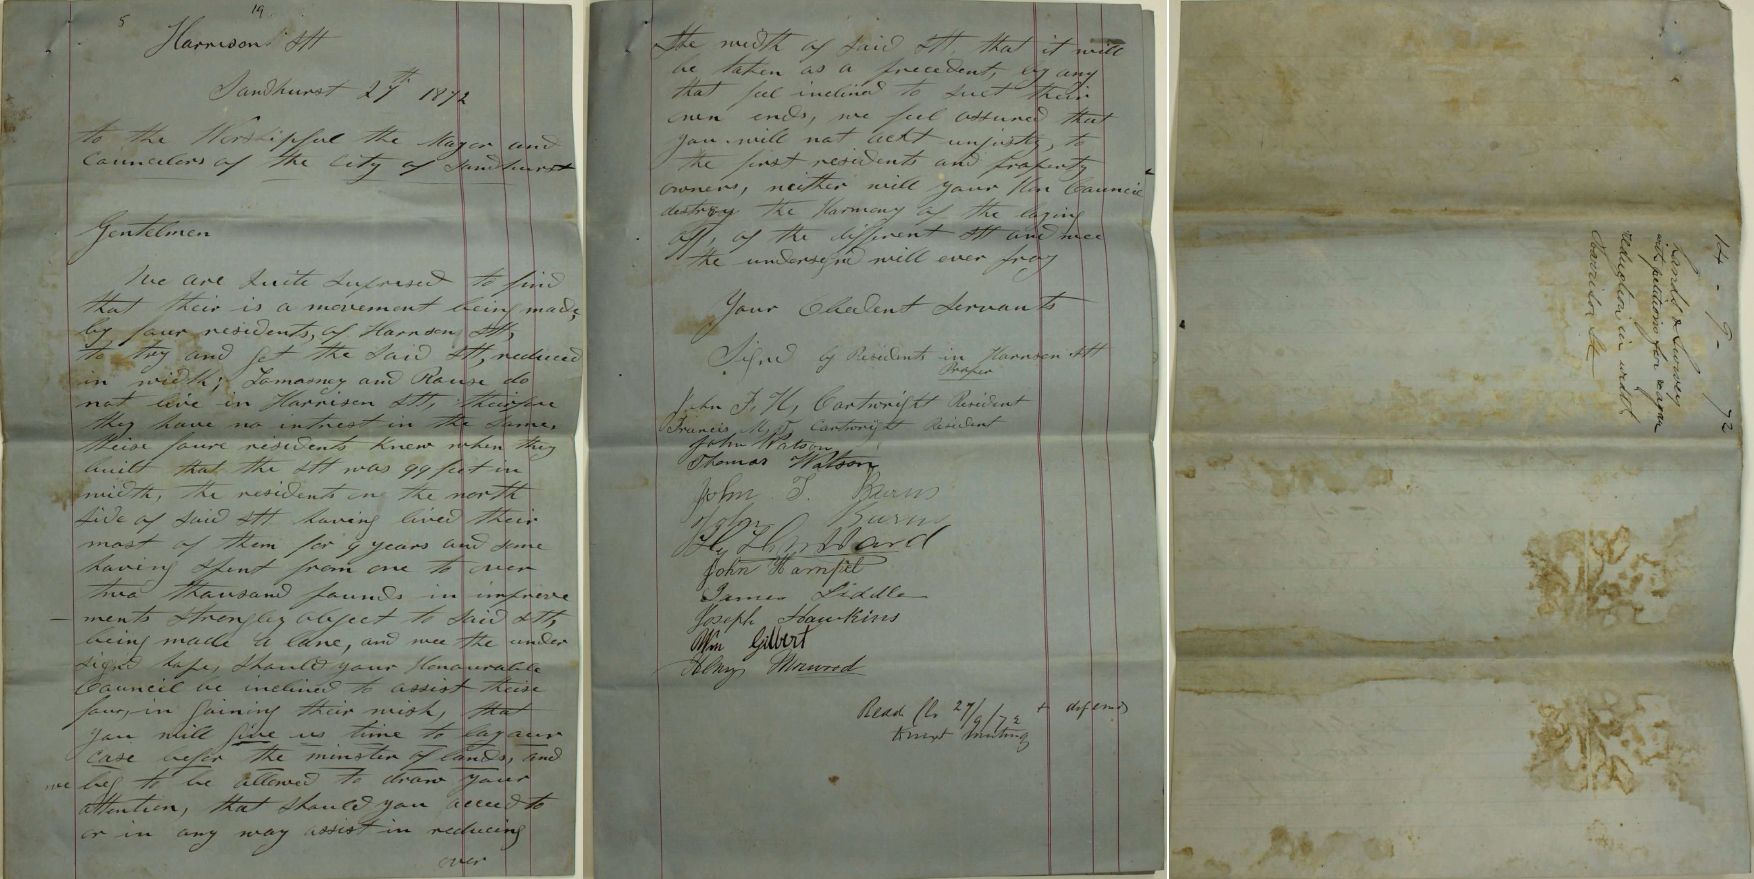 5 19
Harrison Stt
Sandhurst 27th 1872
to the Worshipful the Mayor and
Councelors of the City of Sandhurst
Gentelmen
We are Quite Suprised to find
that their is a movement being made,
by four residents, of Harrison Stt,
to try and get the said Stt, reduced
in width; Lamasney and Rouse do
not live in Harrison Stt, theirfore
they have no intrest in the same,
theise foure residents knew when they
built that the Stt was 99 feet in
width, the residents on the north
side of said Stt having lived their
most of them for 9 years and some
having spent from one to over
two thousand pounds in improve
ments strongley object to said Stt,
being made a lane, and wee the under
signd hope, should your Honourable
Council be inclined to assist theise
four, in gaining their wish, that
you will give us time to lay our
case befor the minster of lands, and
we beg to be allowed to draw your
attention, that should you acceed to
or in any way assist in reducing
over
the width of said Stt, that it will
be taken as a precedent, by any
that feel inclined to suit their
own ends, we feel assured that
you will not ackt unjustly, to
the first residents and property
owners, neither will your Hon Council
destroy the Harmony of the laying
off, of the different Stt and wee
the undersignd will ever pray
Your Obedent Servants
Signd by Residents in Harrison Stt
Proper
John F. H, Cartwright Resident
Francis M. J. Cartwright Resident
John Watson
Thomas Watson
John T. Burns
John Burns
John Hampel
James Liddle
Joseph Hawkins
Wm Gilbert
Henry
Read Cl 27/9/72 + defend
to next meeting
14 - 9 - 72
Lands & Survey
with petitions for & again
reduction in width
Harrison St